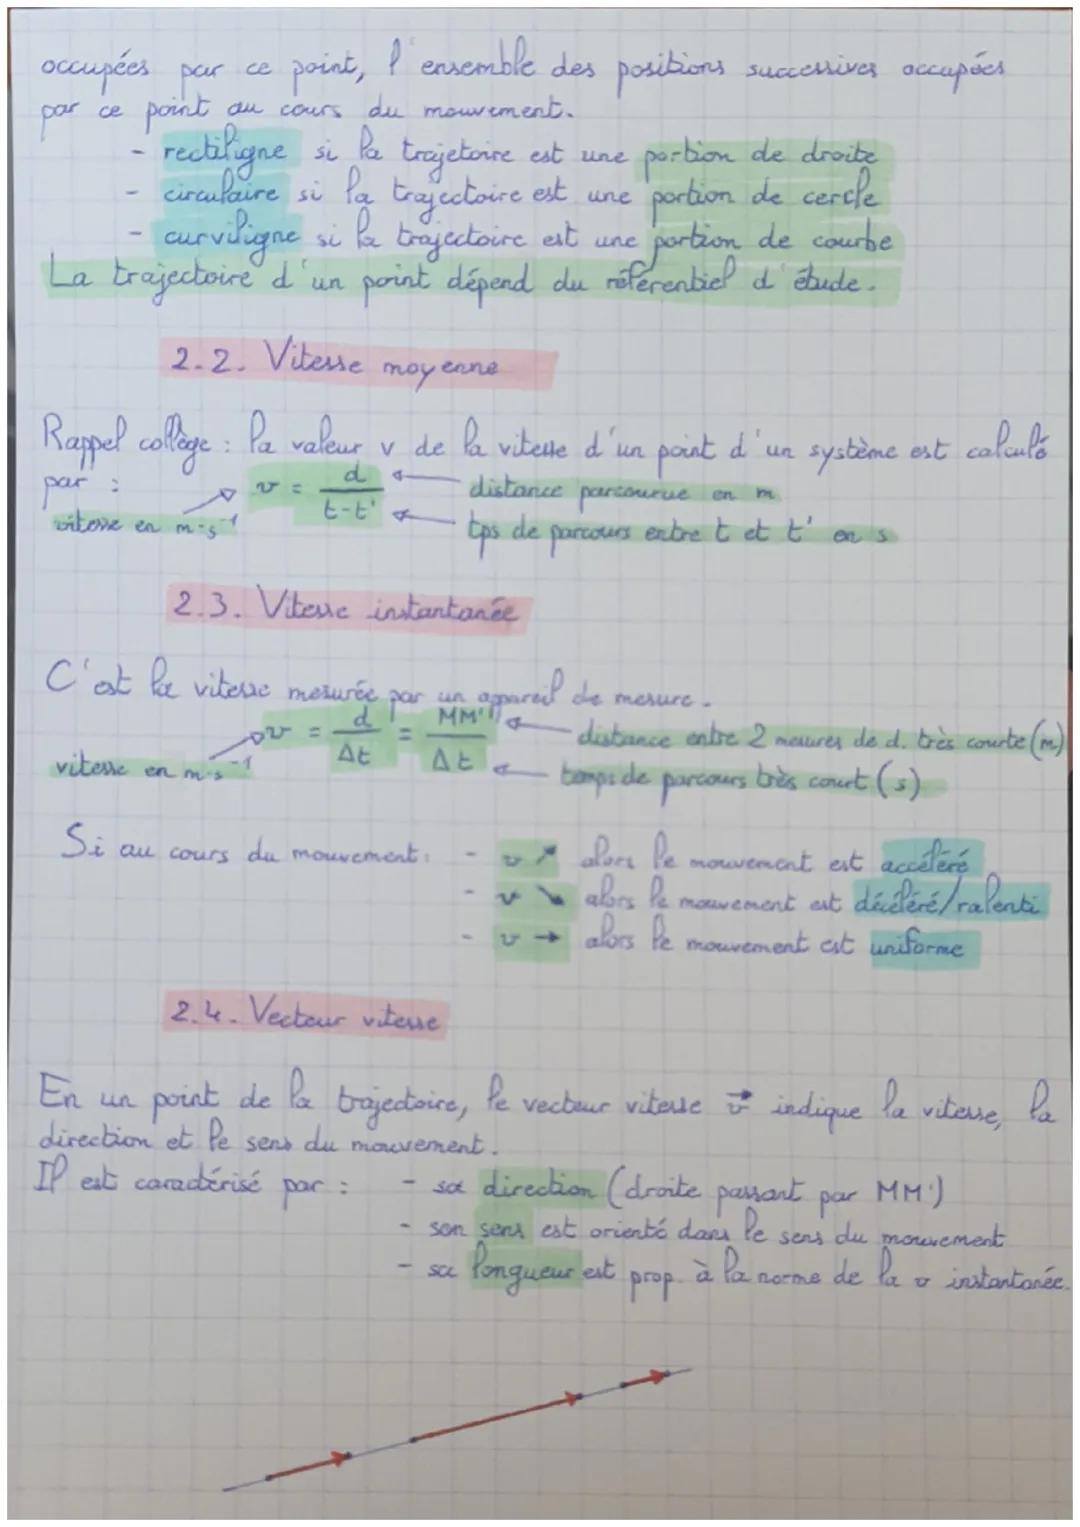 occupées par ce point, l'ensemble des positions successives occupées
par ce point au cours du mouvement.
- rectiligne si la trajetoire est une portion de droite
- circulaire si la trajectoire est une portion de cercle
- curviligne si la trajectoire est une portion de courbe
La trajectoire d'un point dépend du référentiel d'étude.
2.2. Vitesse moyenne
Rappel collège : la valeur v de la vitesse d'un point d'un système est calculé
par : v = d / t-t' distance parcourue en m
vitesse en m·s⁻¹ tps de parcours entre t et t' en s
2.3. Vitesse instantanée
C'est la vitesse mesurée par un appareil de mesure.
v = d / Δt = MM' / Δt distance entre 2 mesures de d. très courte (m)
vitesse en m·s⁻¹ temps de parcours très court (s)
Si au cours du mouvement: - v ↗ alors le mouvement est accéléré
- v ↘ alors le mouvement est décéléré/ralenti
- v → alors le mouvement est uniforme
2.4. Vecteur vitesse
En un point de la trajectoire, le vecteur vitesse v⃗ indique la vitesse, la
direction et le sens du mouvement.
Il est caractérisé par : - sa direction (droite passant par MM')
- son sens est orienté dans le sens du mouvement
- sa longueur est prop. à la norme de la v instantanée.